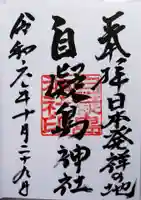 奉拝 日本発祥の地
自凝島神社
令和六年十月二十九日